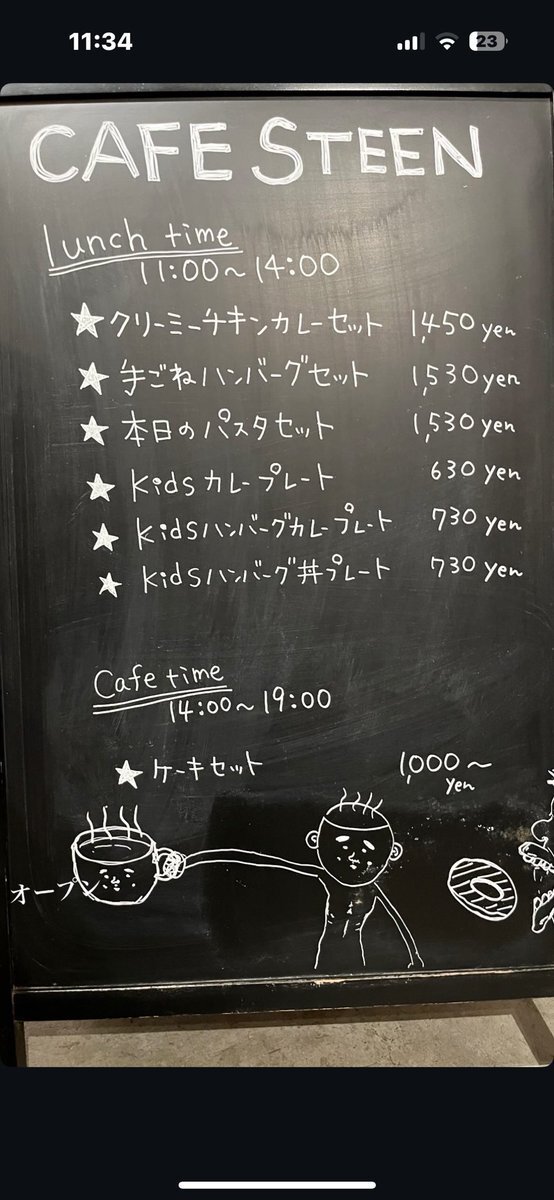 11:34
23
CAFE STEEN
lunch time
11:00～14:00
★クリーミーチキンカレーセット 1,450 yen
★手ごねハンバーグセット 1,530 yen
★本日のパスタセット 1,530 yen
★kidsカレープレート 630 yen
★kidsハンバーグカレープレート 730 yen
★kidsハンバーグ丼プレート 730 yen
Cafe time
14:00～19:00
★ケーキセット 1,000～
yen
オープン